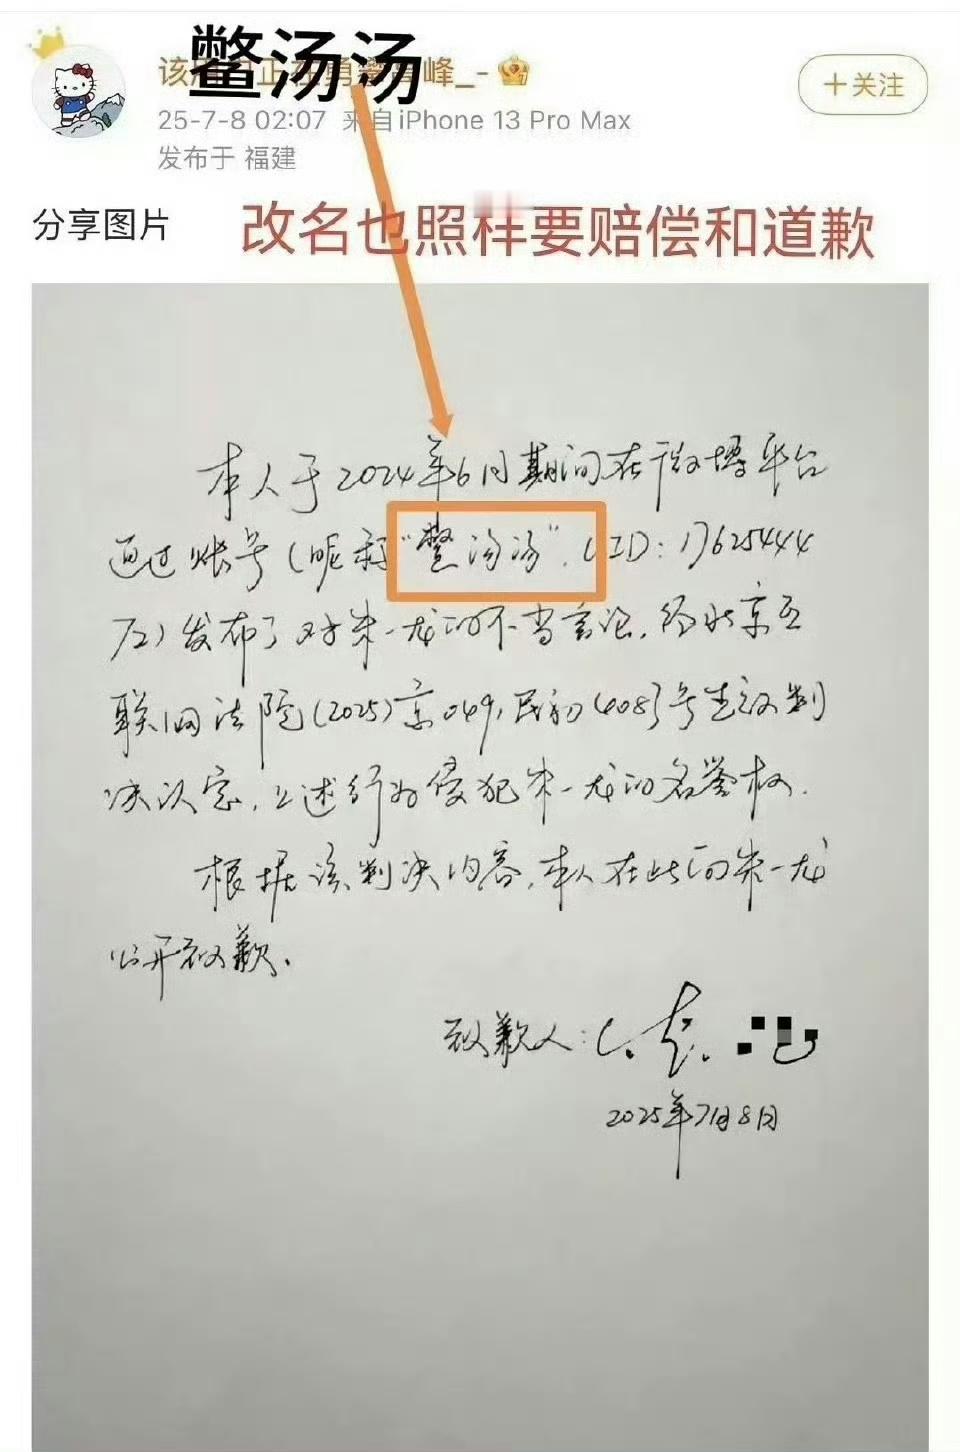 鳖汤汤
该 正 勇 峰_-
25-7-8 02:07 来自 iPhone 13 Pro Max
发布于 福建
+关注
分享图片
改名也照样要赔偿和道歉
本人于2024年6月期间在微博平台
通过账号(昵称“鳖汤汤”,UID:17625444
72)发布了对朱一龙的不当言论,经北京互
联网法院(2025)京0491民初4083号生效判
决认定,上述行为侵犯朱一龙的名誉权.
根据该判决内容,本人在此向朱一龙
公开致歉.
致歉人:
2025年7月8日